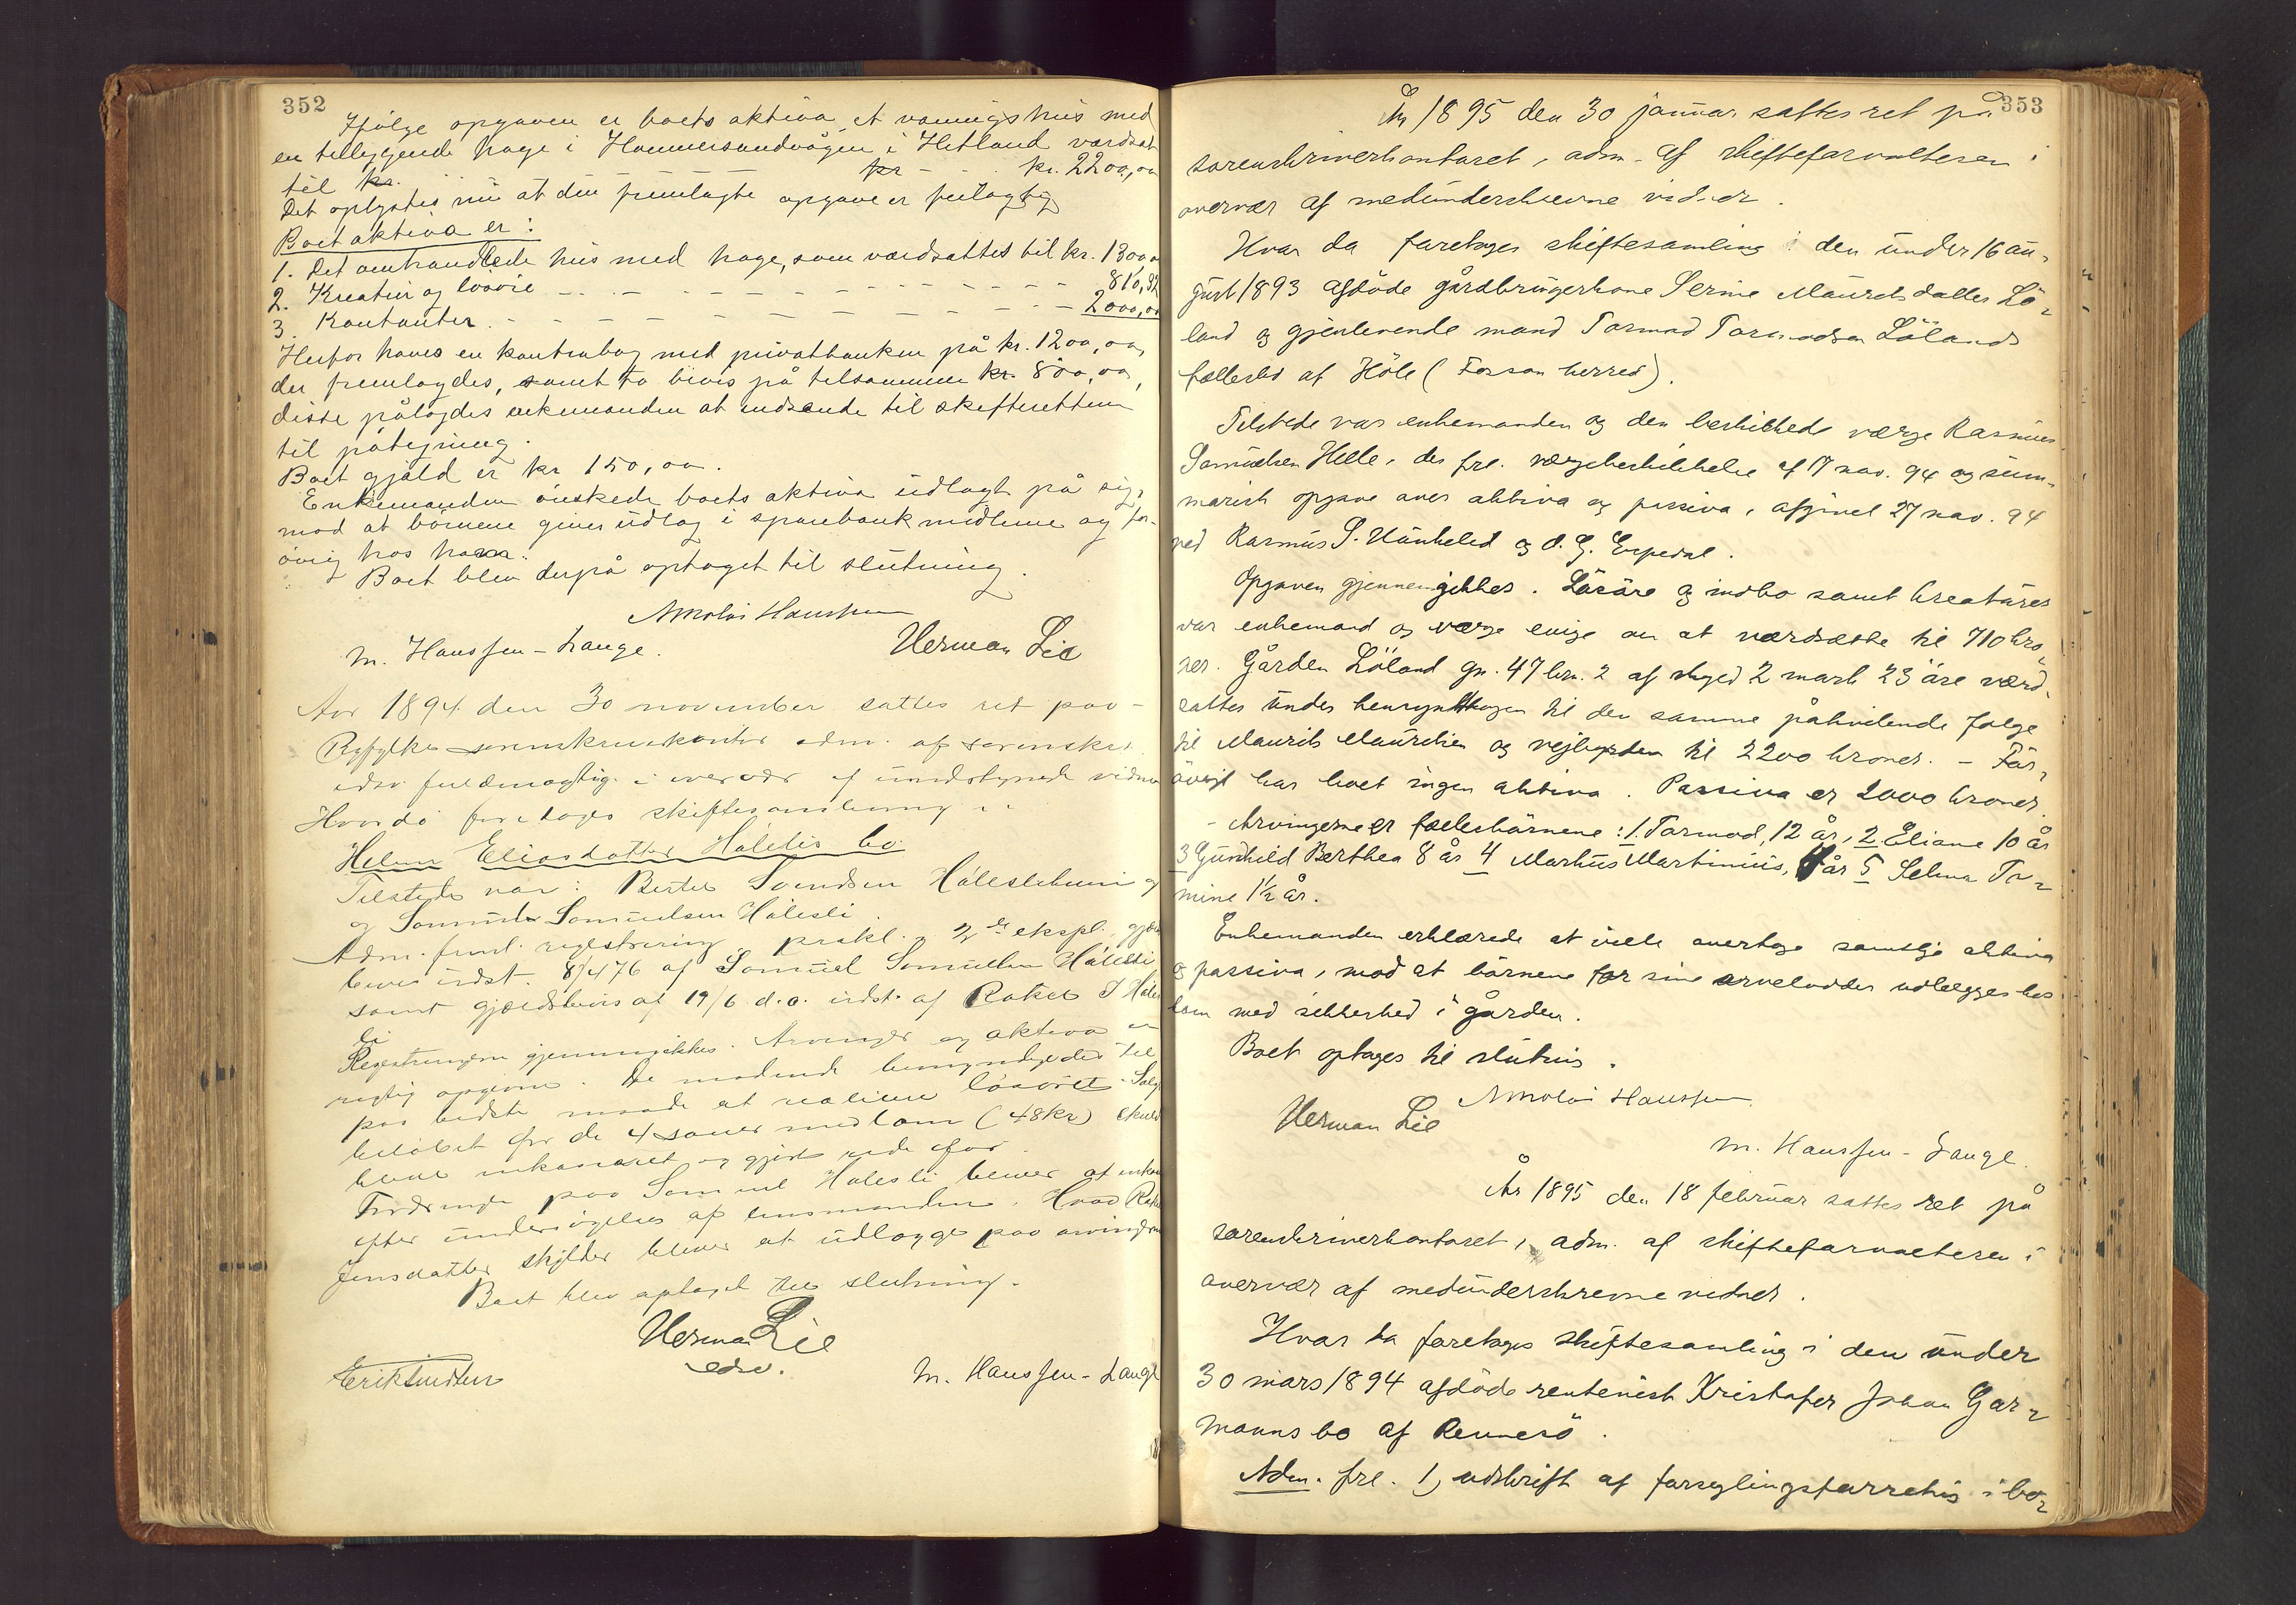 352
Ifølge opgaven er boets aktiva et vaaningshus med
en tilliggende hage i Hommersandvågen i Hetland værdsat
til kr. kr. 2200,00
Det oplystes nu at den fremlagte opgave er feilagtig
Boets aktiva er:
1. Det omhandlede hus med hage, som værdsattes til kr. 1300,00
2. Kreatur og løsøre 810,32
3. Kontanter 2000,00
Herfor haves en kontrabog med privatbanken på kr. 1200,00,
der fremlagdes, samt to bevis på tilsammen kr. 800,00,
disse pålagdes enkemanden at indsende til skifteretten
til påtegning.
Boets gjæld er kr 150,00.
Enkemanden ønskede boets aktiva udlagt på sig,
mod at børnene gives udlag i sparebankmidlerne og for-
øvrig hos ham.
Boet blev derpå optaget til slutning.
Nikolai Hanssen
M. Hanssen-Lange. Herman Lie
Aar 1894 den 30 november sattes ret paa
Ryfylke sorenskriverkontor adm. af sorenskri
edsv fuldmægtig i overvær af undertegnede vidner
Hvorda foretoges skiftesamling i
Helene Eliasdatter Hålelis bo.
Tilstede var: Bertel Svendsen og
og Samuel Samuelsen Hålesli.
Adm. freml. registrering, prokl. i 2 ekspl., gjælds
bevis udst. 8/4 76 af Samuel Samuelsen Hålesli
samt gjældsbevis af 19/6 d.a. udst. af Rakel J Hales
li
Registreringen gjennemgikkes. Arvinger og aktiva er
rigtig opgivne. De mødende bemyndigedes til
paa bedste maade at realisere løsøret. Salgs
beløbet for de 4 sauer med lam (48 kr) skulde
blive inkasseret og gjort rede for.
Fordringen paa Samuel Hålesli bliver at inkas
efter undersøgelse af lensmanden. Hvad Rakel
Jensdatter skylder bliver at udlægge paa arvingerne
Boet blev optaget til slutning.
Herman Lie
edsv.
M. Hanssen-Lange
353
År 1895 den 30 januar sattes ret på
sorenskriverkontoret, adm. af skifteforvalteren i
overvær af medunderskrevne vidner.
Hvor da foretages skiftesamling i den under 16 au-
gust 1893 afdøde gårdbrugerkone Serine Mauritsdatter Lø-
land og gjenlevende mand Tormod Tormodsen Lølands
fællesbo af Høle (Forsan herred).
Tilstede var enkemanden og den beskikkede værge Rasmus
Samuelsen Helle, der frl. værgebeskikkelse af 17 nov. 94 og sum-
marisk opgave over aktiva og passiva, afgivet 27 nov. 94
ved Rasmus S. Uünheled og O. G. Espedal.
Opgaven gjennemgikkes. Løsøre og indbo samt kreaturer
var enkemand og værge enige om at værdsætte til 710 kro-
ner. Gården Løland gn. 47 brn. 2 af skyld 2 mark 23 øre værd-
sattes under hensyntagen til den samme påhvilende følge
til Maurits Mauritsen og vejbyrden til 2200 kroner. - For-
øvrigt har boet ingen aktiva. Passiva er 2000 kroner.
- Arvingerne er fællesbørnene: 1. Tormod, 12 år, 2 Eliane 10 år
3 Gunhild Berthea 8 år 4 Markus Martinius, 4 år 5 Selma To-
mine 1½ år.
Enkemanden erklærede at ville overtage samtlige aktiva
og passiva, mod at børnene for sine arvelodder udlægges hos
ham med sikkerhed i gården.
Boet optages til slutning.
Nikolai Hanssen
Herman Lie
M. Hanssen-Lange.
År 1895 den 18 februar sattes ret på
sorenskriverkontoret, adm. af skifteforvalteren i
overvær af medunderskrevne vidner.
Hvor da foretages skiftesamling i den under
30 mars 1894 afdøde rentenist Kristofer Johan Gar-
manns bo af Rennesø.
Adm. frl. 1, udskrift af forseglingsforretning i bo-